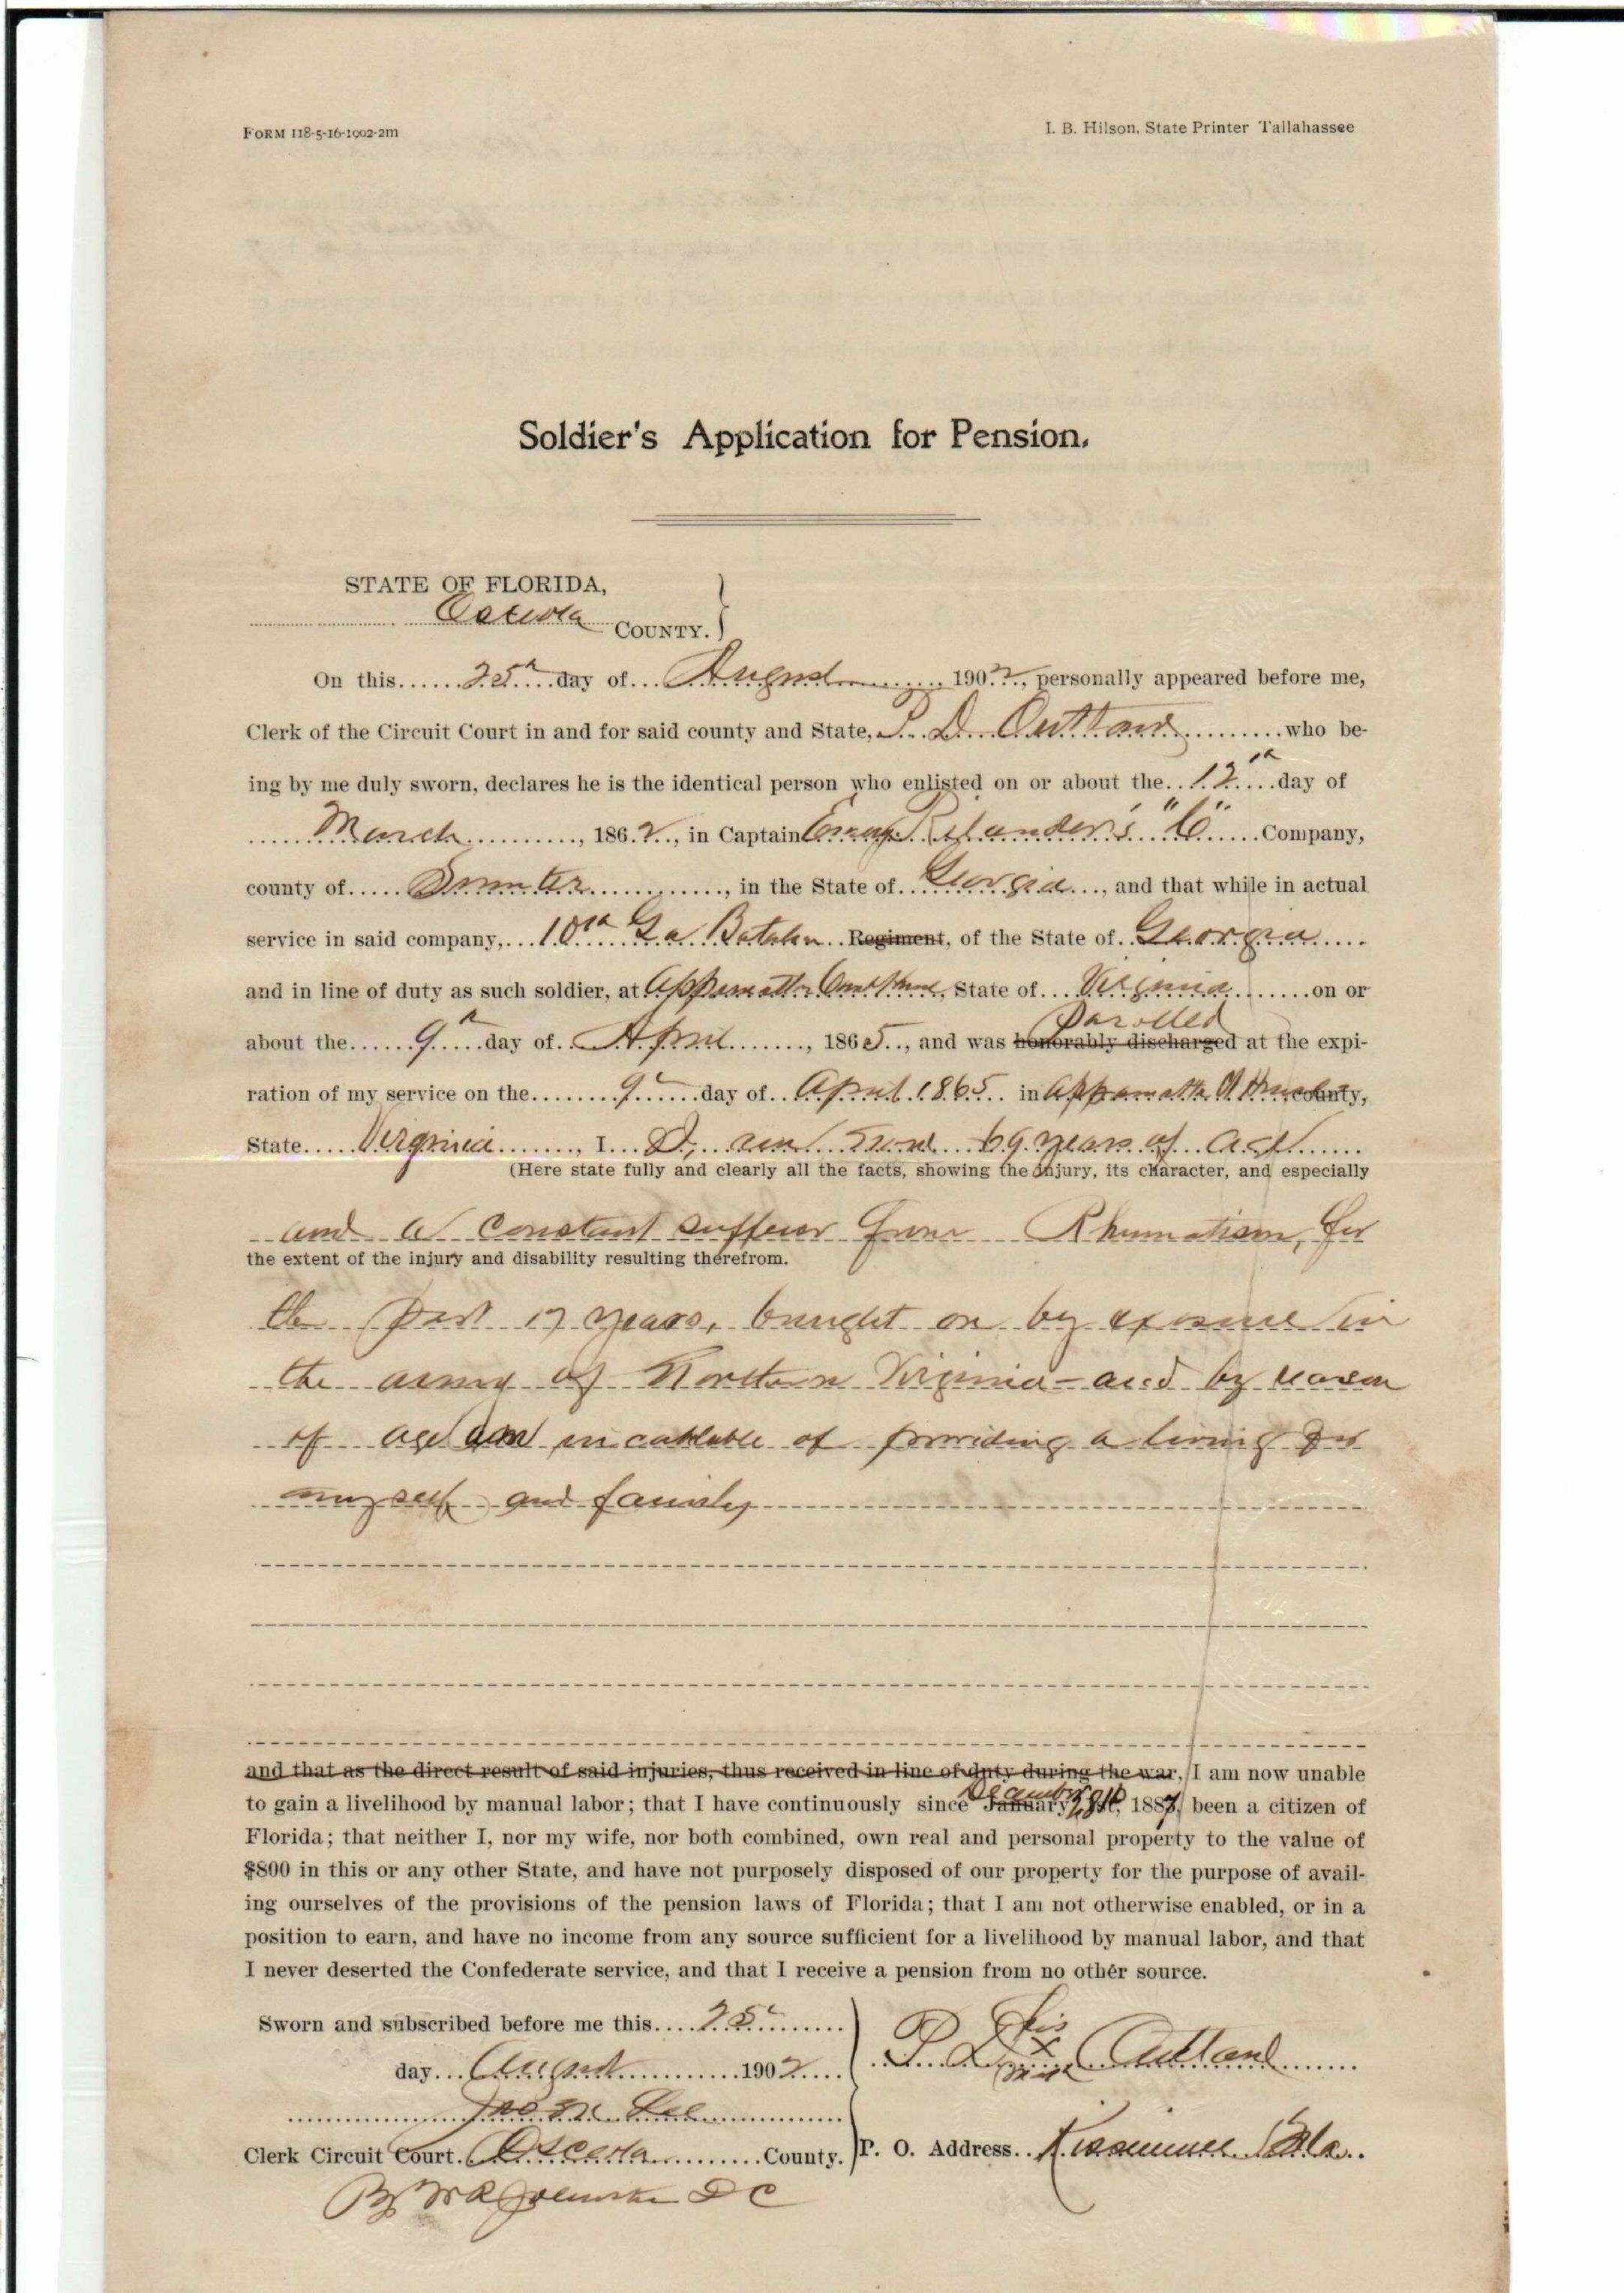 FORM 118-5-16-1902-2m
I. B. Hilson, State Printer Tallahassee
Soldier's Application for Pension.
STATE OF FLORIDA,
Osceola COUNTY.
On this 25th day of August 1902, personally appeared before me,
Clerk of the Circuit Court in and for said county and State, P. D. Outland who be-
ing by me duly sworn, declares he is the identical person who enlisted on or about the 12th day of
March, 1862, in Captain Rylander's "C" Company,
county of Sumter, in the State of Georgia, and that while in actual
service in said company, 10th Ga Batalin Regiment, of the State of Georgia
and in line of duty as such soldier, at Appomattox Court House, State of Virginia on or
parolled
about the 9th day of April, 1865, and was honorably discharged at the expi-
ration of my service on the 9th day of April 1865 in Appomattox county,
State Virginia, I am now 69 years of age
(Here state fully and clearly all the facts, showing the injury, its character, and especially
and a constant sufferer from Rhumatism, for
the extent of the injury and disability resulting therefrom.
the past 17 years, brought on by exposure in
the army of Northern Virginia - and by reason
of age am incapable of providing a living for
myself and family
and that as the direct result of said injuries, thus received in line of duty during the war, I am now unable
December 28th
to gain a livelihood by manual labor; that I have continuously since January 1st, 1887, been a citizen of
Florida; that neither I, nor my wife, nor both combined, own real and personal property to the value of
$800 in this or any other State, and have not purposely disposed of our property for the purpose of avail-
ing ourselves of the provisions of the pension laws of Florida; that I am not otherwise enabled, or in a
position to earn, and have no income from any source sufficient for a livelihood by manual labor, and that
I never deserted the Confederate service, and that I receive a pension from no other source.
Sworn and subscribed before me this 25th
day August 1902
P. D. his x mark Outland
Jno M Lee
Clerk Circuit Court. Osceola County.
P. O. Address. Kissimmee Fla.
By W R Johnston D C